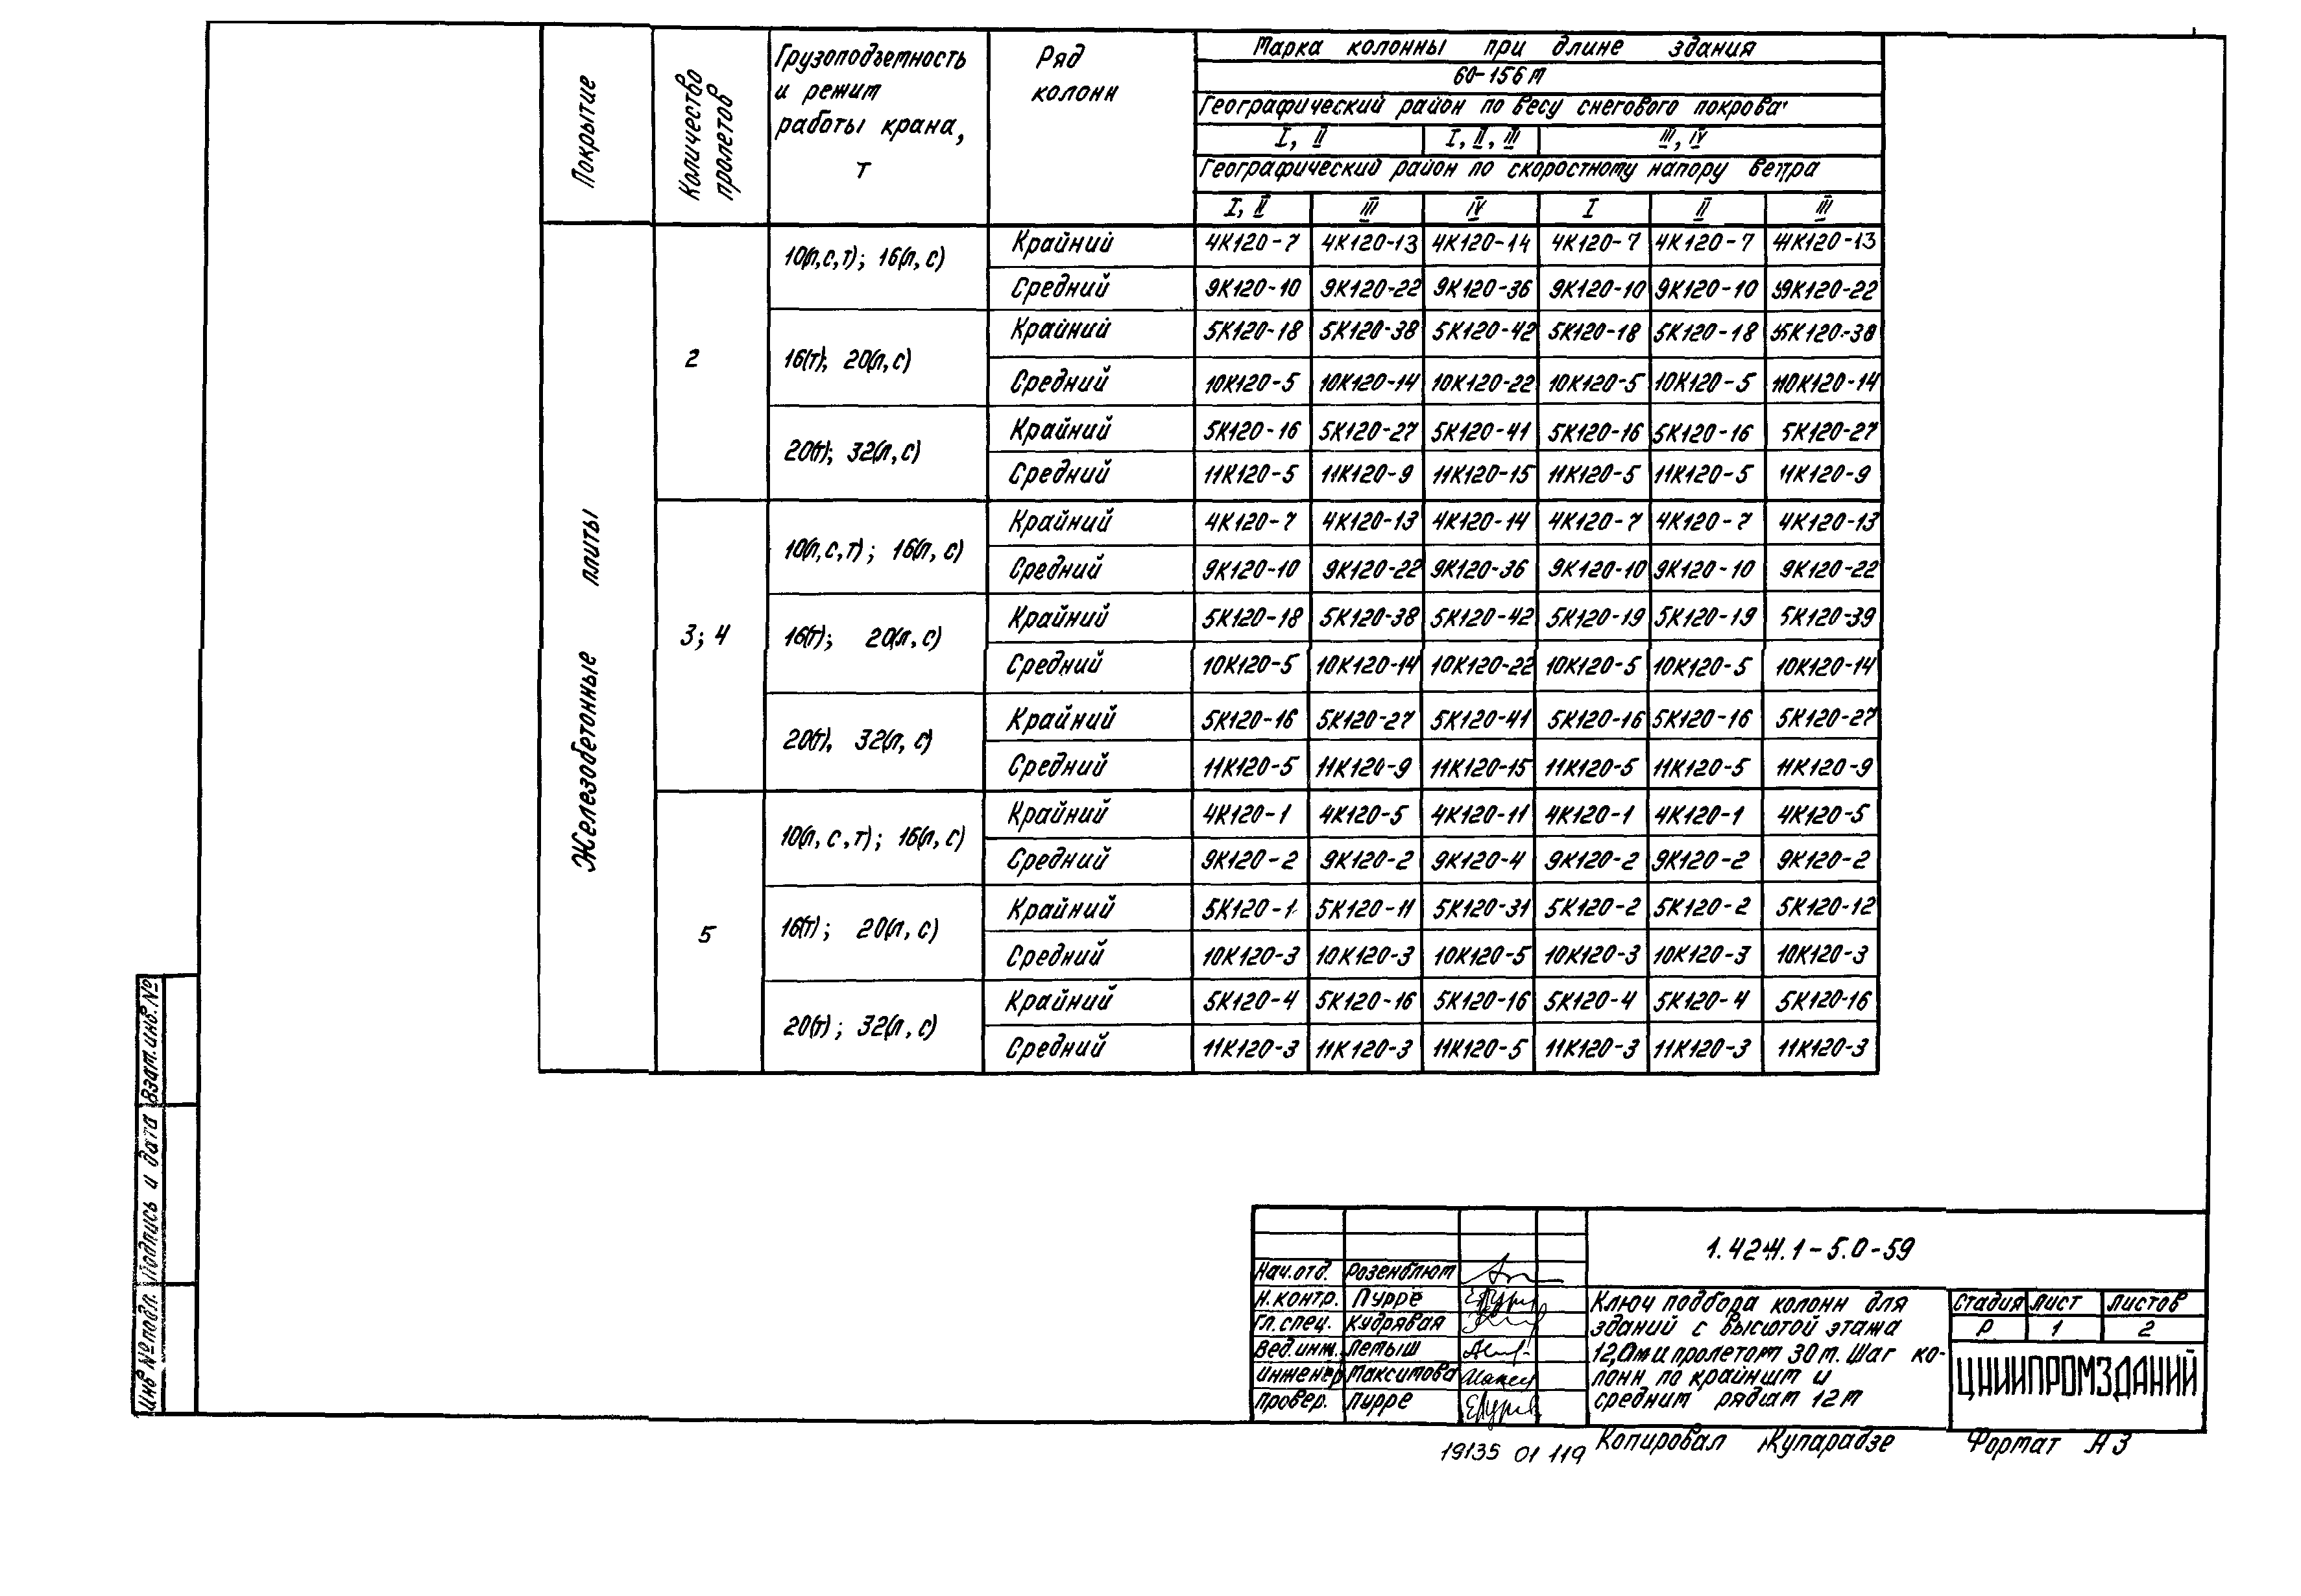 Покрытие
Количество
пролетов
Грузоподъемность
и режим
работы крана,
т
Ряд
колонн
Марка колонны при длине здания
60-156 м
Географический район по весу снегового покрова
I, II I, II, III III, IV
Географический район по скоростному напору ветра
I, II III IV I II III
Железобетонные плиты
2
10(л,с,т); 16(л,с)
Крайний 4К120-7 4К120-13 4К120-14 4К120-7 4К120-7 4К120-13
Средний 9К120-10 9К120-22 9К120-36 9К120-10 9К120-10 9К120-22
16(т); 20(л,с)
Крайний 5К120-18 5К120-38 5К120-42 5К120-18 5К120-18 5К120-38
Средний 10К120-5 10К120-14 10К120-22 10К120-5 10К120-5 10К120-14
20(т); 32(л,с)
Крайний 5К120-16 5К120-27 5К120-41 5К120-16 5К120-16 5К120-27
Средний 11К120-5 11К120-9 11К120-15 11К120-5 11К120-5 11К120-9
3; 4
10(л,с,т); 16(л,с)
Крайний 4К120-7 4К120-13 4К120-14 4К120-7 4К120-7 4К120-13
Средний 9К120-10 9К120-22 9К120-36 9К120-10 9К120-10 9К120-22
16(т); 20(л,с)
Крайний 5К120-18 5К120-38 5К120-42 5К120-19 5К120-19 5К120-39
Средний 10К120-5 10К120-14 10К120-22 10К120-5 10К120-5 10К120-14
20(т), 32(л,с)
Крайний 5К120-16 5К120-27 5К120-41 5К120-16 5К120-16 5К120-27
Средний 11К120-5 11К120-9 11К120-15 11К120-5 11К120-5 11К120-9
5
10(л,с,т); 16(л,с)
Крайний 4К120-1 4К120-5 4К120-11 4К120-1 4К120-1 4К120-5
Средний 9К120-2 9К120-2 9К120-4 9К120-2 9К120-2 9К120-2
16(т); 20(л,с)
Крайний 5К120-1 5К120-11 5К120-31 5К120-2 5К120-2 5К120-12
Средний 10К120-3 10К120-3 10К120-5 10К120-3 10К120-3 10К120-3
20(т); 32(л,с)
Крайний 5К120-4 5К120-16 5К120-16 5К120-4 5К120-4 5К120-16
Средний 11К120-3 11К120-3 11К120-5 11К120-3 11К120-3 11К120-3
Взам.инв.№
Подпись и дата
Инв № подл.
1.424.1-5.0-59
Нач.отд. Розенблюм
Н.контр. Пурре
Гл.спец. Кудрявая
Вед.инж. Лемыш
Инженер Максимова
Провер. Пурре
Ключ подбора колонн для
зданий с высотой этажа
12,0м и пролетом 30м. Шаг ко-
лонн по крайним и
средним рядам 12м
Стадия Лист Листов
Р 1 2
ЦНИИПРОМЗДАНИЙ
19135 01 119
Копировал Жупарадзе Формат А3